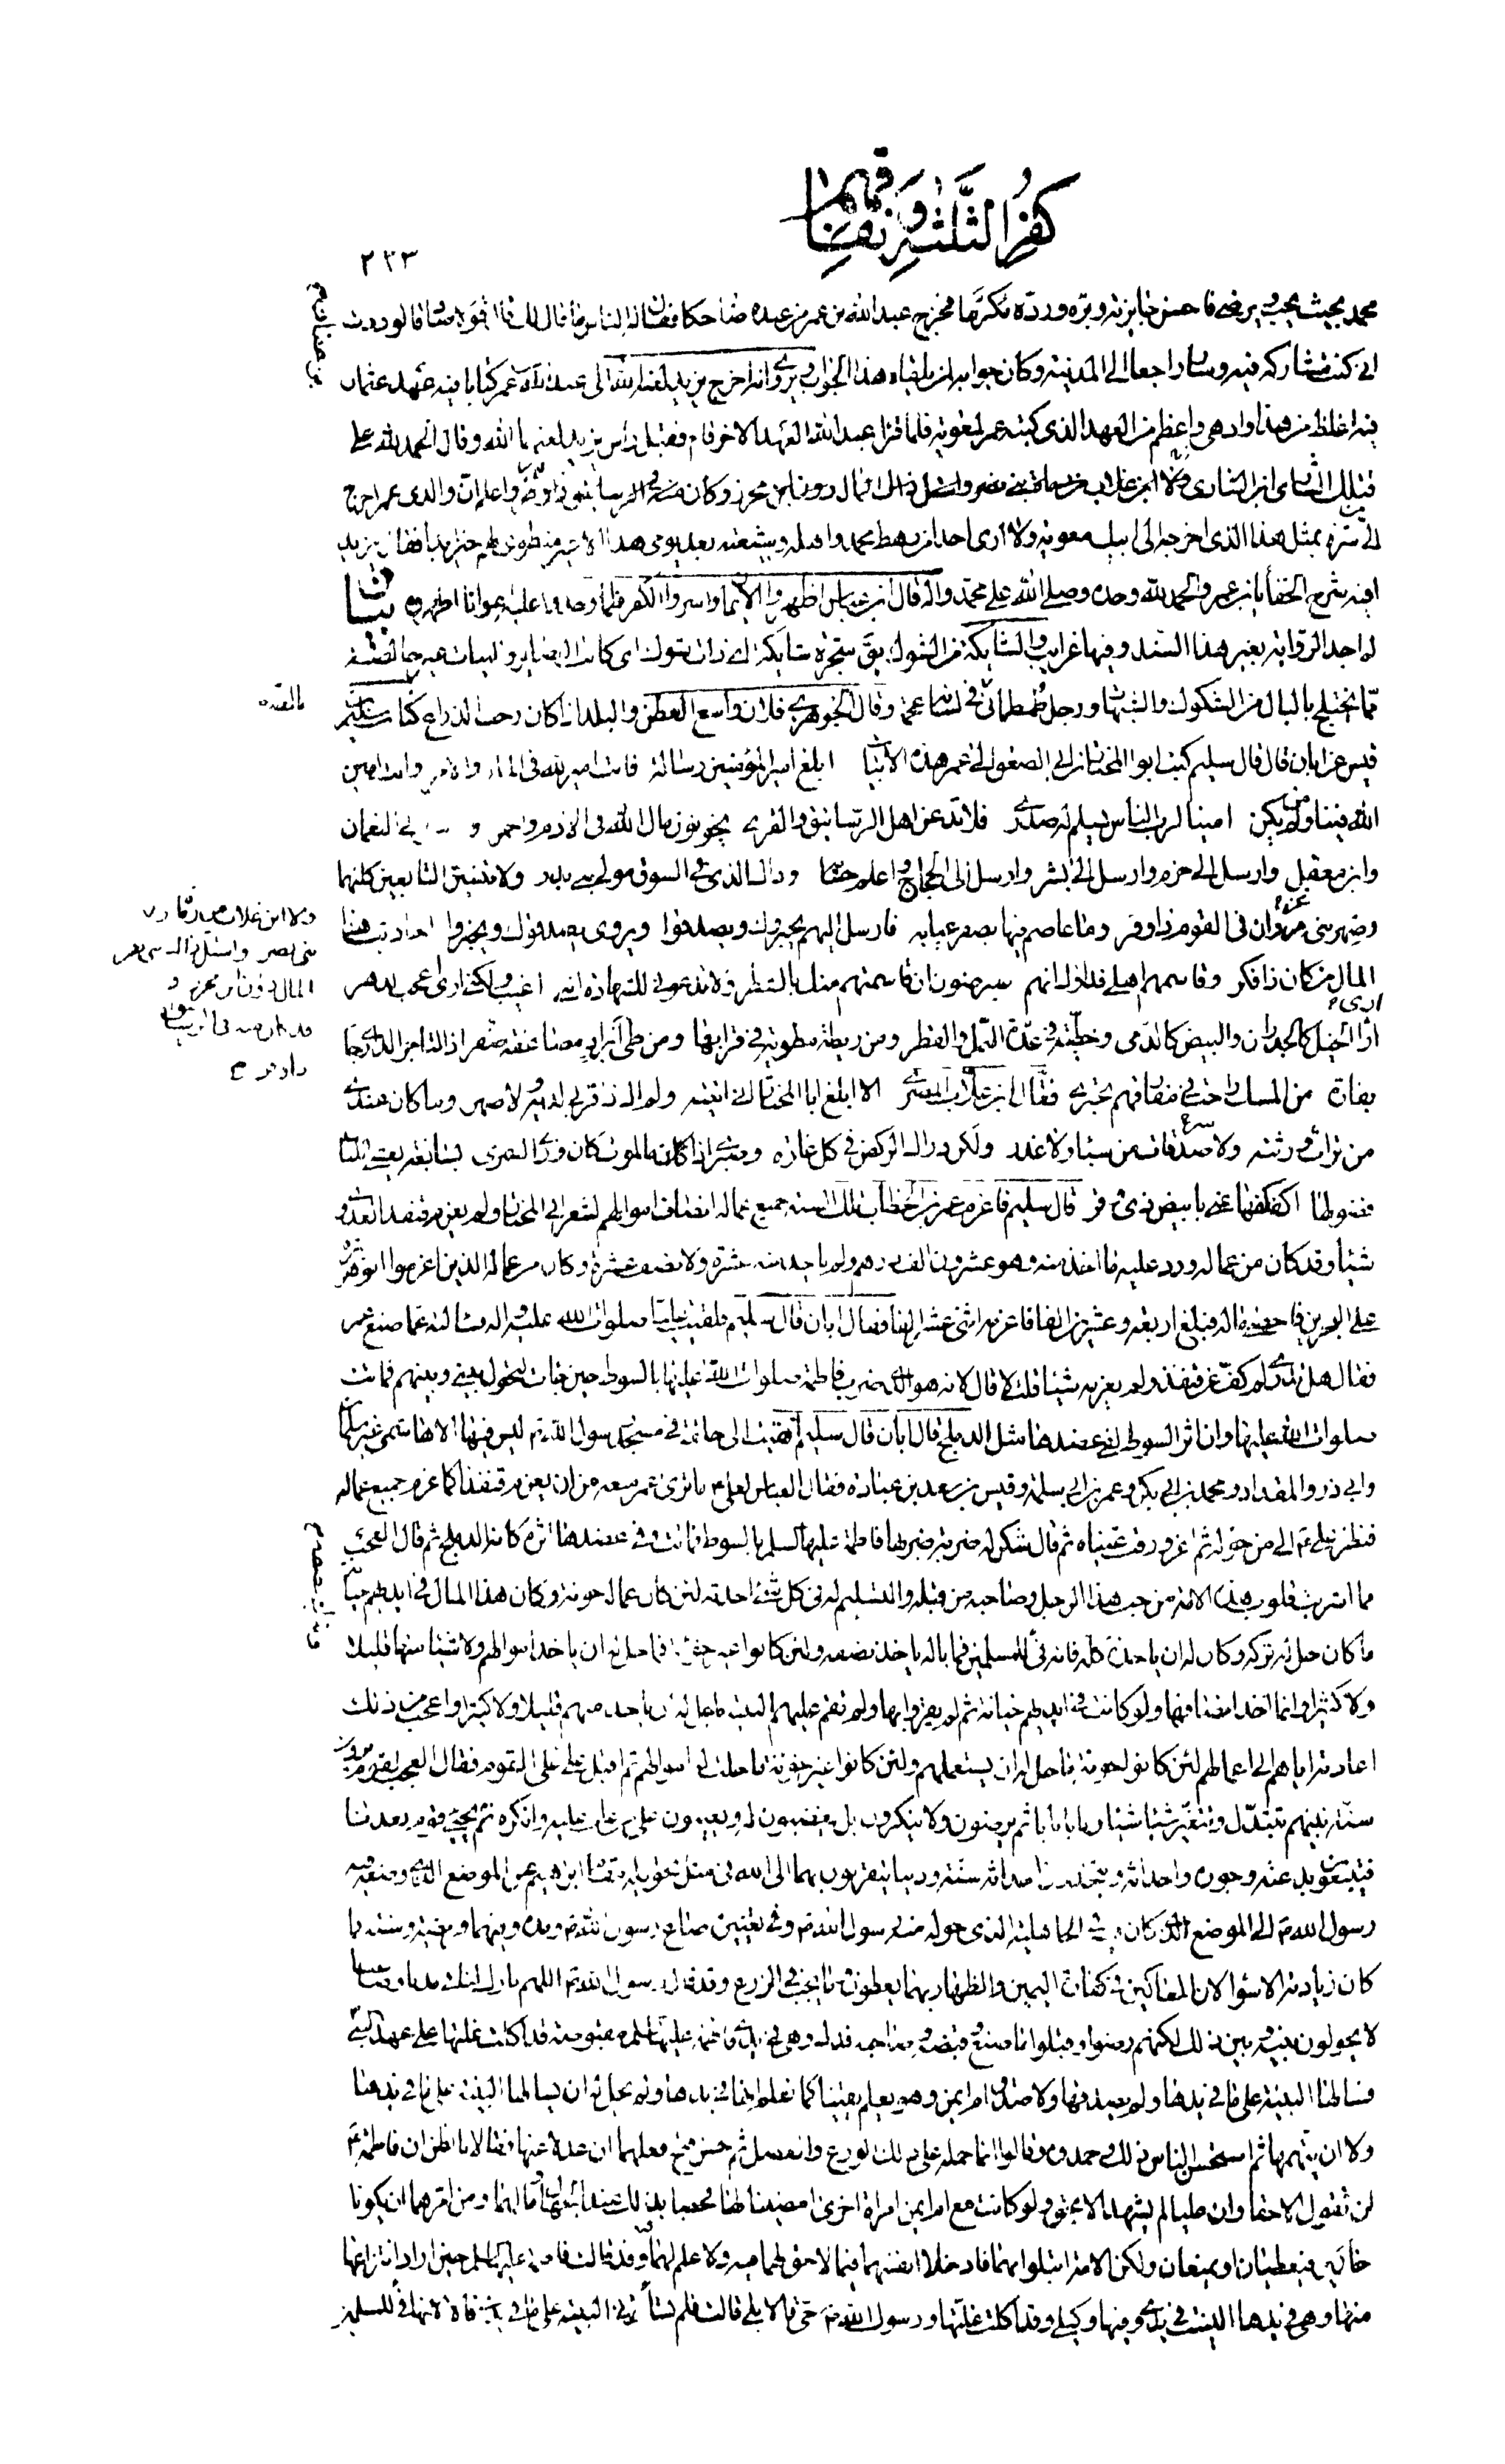 كفر الثلثة و نفاقهم
٢٢٣
محمد بحيث يحب و يرضى فاحسن جايزته و بره و رده مكرما فخرج عبد الله بن عمر من عنده ضاحكا فقال له الناس ما قال لك قال قولا صادقا لوددت
انى كنت مشاركه فيه و سار راجعا الى المدينة و كان جوابه لمن يلقاه هذا الجواب و يروى انه اخرج يزيد لعنه الله الى عبد الله بن عمر كتابا فيه عهد عثمان
فيه اغلظ من هذا و ادهى و اعظم من العهد الذى كتبه عمر لمعوية فلما قرأ عبد الله العهد الاخر قام فقبل رأس يزيد لعنهما الله و قال الحمد لله على
قتلك الشارى ابن الشارى و اعلم ان والدى عمر اخرج
الى من سره بمثل هذا الذى اخرجه الى ابيك معوية و لا ارى احدا من رهط محمد و اهله و شيعته بعد يومى هذا الا غير منطو لهم على خير ابدا فقال يزيد
افيه شرح الخفا يابن عمر و الحمد لله وحده و صلى الله على محمد و اله قال ابن عباس اظهروا الايمان و اسروا الكفر فلما وجدوا عليه اعوانا اظهروه بيان
لم اجد الرواية بغير هذا السند و فيها غرايب و الشايكة من الشوك يق شجرة شايكة اى ذات شوك اى كانت البصاير و النيات غير خالصة
مما يختلج بالبال من الشكوك و الشبهات و رجل طمطمانى فى لسانه عجمة و قال الجوهرى فلان واسع العطن و البلد اذا كان رحب الذراع كتاب سليم بن
قيس عن ابان قال قال سليم كتب ابو المختار بن ابى الصعق الى عمر هذه الابيات ابلغ امير المؤمنين رسالة فانت امير الله فى المال و الامر و انت امين
الله فينا و من يكن امينا لرب الناس يسلم له صدرى فلا تدعن اهل الرساتيق و القرى يخونون مال الله فى الادم و الحمر و ارسل الى النعمان
و ابن معقل و ارسل الى حزم و ارسل الى بشر و ارسل الى الحجاج و اعلم حسابه و ذاك الذى فى السوق مولى بنى بدر و لا تنسين التابعين كليهما
و صهر بنى غزوان فى القوم ذا وفر و ما عاصم فيها بصفر عيابه فارسل اليهم يخبروك و يصدقوا احاديث هذا
المال من كان ذا فكر و قاسمهم اهلى فداؤك انهم سيرضون ان قاسمتهم منك بالشطر و لا تدعونى للشهادة اننى اغيب و لكنى ارى عجب الدهر
ارى الخيل كالجدران و البيض كالدمى و خطية فى عدة النمل و القطر و من ريطة مطوية فى قرابها و من طى ابراد مضاعفة صفر اذا التاجر الدارى جاء
بفارة من المسك راحت فى مفارقهم تجرى فقال ابن غلاب المصرى الا ابلغ ابا المختار انى اتيته و لم اك ذا قربى لديه و لا صهر و ما كان عندى
من تراث ورثته و لا صدقات من سباء و لا غدر و لكن دراك الركض فى كل غارة و صبرى اذا ما الموت كان ورا السمر بسابغة يغشى اللبان
فضولها اكفكفها عنى بابيض ذى وقر قال سليم فاغرم عمر بن الخطاب تلك السنة جميع عماله انصاف اموالهم لشعر ابى المختار و لم يغرم قنفذ العدوى
شيئا و قد كان من عماله و رد عليه ما اخذ منه و هو عشرون الف درهم و لم ياخذ منه عشره و لا نصف عشره و كان من عماله الذين اغرموا ابو هريرة
على البحرين فاحصى ماله فبلغ اربعة و عشرين الفا فاغرمه اثنى عشر الفا فقال ابان قال سليم فلقيت عليا صلوات الله عليه و اله فسالته عما صنع عمر
فقال هل تدرى لم كف عن قنفذ و لم يغرمه شيئا قلت لا قال لانه هو الذى ضرب فاطمة صلوات الله عليها بالسوط حين جاءت لتحول بينى و بينهم فماتت
صلوات الله عليها و ان اثر السوط لفى عضدها مثل الدملج قال ابان قال سليم انتهيت الى حلقة فى مسجد رسول الله ص ليس فيها الا هاشمى غير سلمان
و ابى ذر و المقداد و محمد بن ابى بكر و عمر بن ابى سلمة و قيس بن سعد بن عبادة فقال العباس لعلى ع ما ترى عمر منعه من ان يغرم قنفذا كما غرم جميع عماله
فنظر على ع الى من حوله ثم اغرورقت عيناه ثم قال شكر له ضربة ضربها فاطمة عليها السلم بالسوط فماتت و فى عضدها اثره كانه الدملج ثم قال العجب
مما اشربت قلوب هذه الامة من حب هذا الرجل و صاحبه من قبله و التسليم له فى كل شئ احدثه لئن كان عماله خونة و كان هذا المال فى ايديهم خيانة
ما كان حل له تركه و كان له ان ياخذه كله فانه فئ للمسلمين فما باله ياخذ نصفه و لئن كانوا غير خونة فما حل له ان ياخذ اموالهم و لا شيئا منها قليلا
و لا كثيرا و انما اخذ انصافها و لو كانت فى ايديهم خيانة ثم لم يقروا بها و لم تقم عليهم البينة ما حل له ان ياخذ منهم قليلا و لا كثيرا و اعجب من ذلك
اعادته اياهم الى اعمالهم لئن كانوا خونة ما حل له ان يستعملهم و لئن كانوا غير خونة ما حلت له اموالهم ثم اقبل على ع على القوم فقال العجب لقوم يرون
سنة نبيهم تتبدل و تتغير شيئا شيئا بابا بابا ثم يرضون و لا ينكرون بل يغضبون له و يعيبون على من عاب عليه و انكره ثم يجئ قوم بعدنا
فيتبعون بدعته و جوره و احداثه و يتخذون احداثه سنة و دينا يتقربون بهما الى الله فى مثل تحويله مقام ابراهيم من الموضع الذى وضعه فيه
رسول الله ص الى الموضع الذى كان فيه فى الجاهلية الذى حوله منه رسول الله ص و فى تغييره صاع رسول الله ص و مده و فيهما فريضة و سنة فما
كان زيادته الا سوءا لان المساكين فى كفارة اليمين و الظهار بهما يعطون ما يجب فى الزرع و قد قال رسول الله ص اللهم بارك لنا فى مدنا و صاعنا
لا يحولون بينه و بين ذلك لكنهم رضوا و قبلوا ما صنع و قبضه و صاحبه فدك و هى فى يدى فاطمة عليها السلم مقبوضة قد اكلت غلتها على عهد النبى
فسالها البينة على ما فى يدها و لم يصدقها و لا صدق ام ايمن و هو يعلم يقينا كما نعلم انها فى يدها و لم يحل له ان يسالها البينة على ما فى يدها
و لا ان يتهمها ثم استحسن الناس ذلك و حمدوه و قالوا انما حمله على ذلك الورع و الفضل ثم حسن قبح فعلهما ان عدلا عنها فقالا بالظن ان فاطمة ع
لن تقول الا حقا و ان عليا لم يشهد الا بحق و لو كانت مع ام ايمن امراة اخرى امضينا لها فحظيا بذلك عند الجهال و ما هما و من امرهما ان يكونا
حاكمين فيعطيان او يمنعان و لكن الامة ابتلوا بهما فادخلا انفسهما فيما لا حق لهما فيه و لا علم لهما به و قد قالت فاطمة عليها السلم حين اراد انتزاعها
منها و هى فى يدها اليست فى يدى و فيها وكيلى و قد اكلت غلتها و رسول الله ص حى قالا بلى قالت فلم تسألنى البينة على ما فى يدى قالا لانها فئ للمسلمين